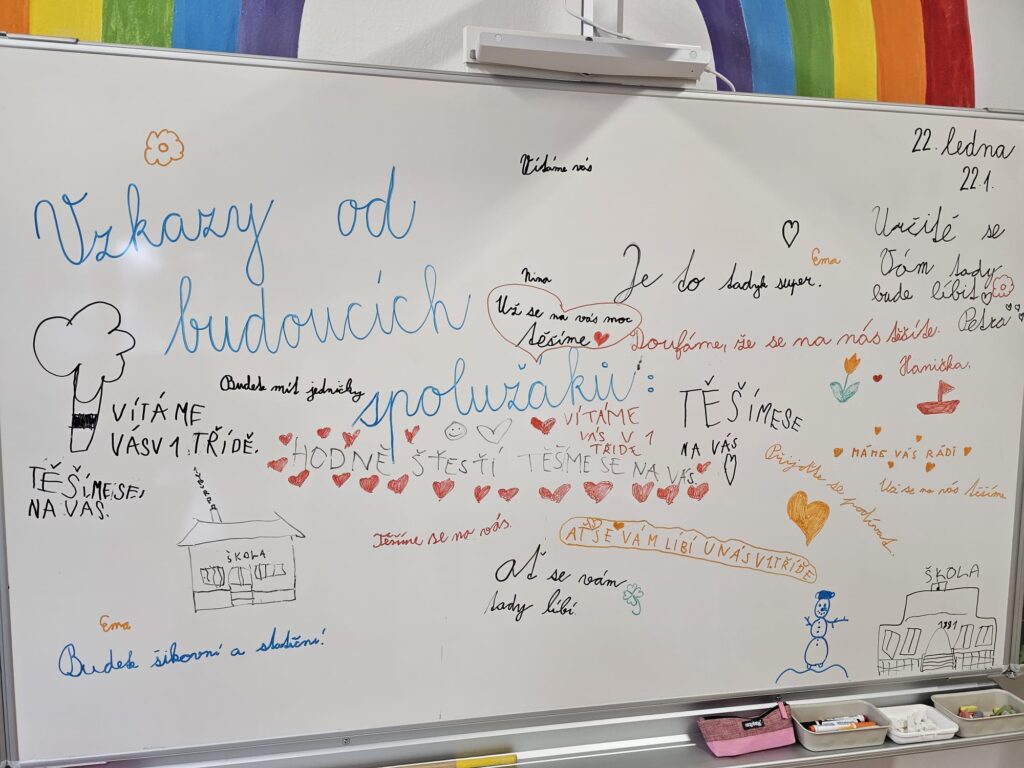 22. ledna
22.1.
Vzkazy od
budoucích
spolužáků:
Vítáme vás
Určitě se
Vám tady
bude líbit
Petra
Ema
Je to tadyk super.
Nina
Už se na vás moc
těšíme
Doufáme, že se na nás těšíte.
Hanička.
Budek mít jedničky
VÍTÁME
VÁS V 1. TŘÍDĚ.
VÍTÁME
VÁS V 1
TŘÍDE
TĚŠÍMESE
NA VÁS
HODNĚ ŠTESTÍ TĚŠMESE NA VÁS.
MÁME VÁS RÁDI
Přijďte se podívat.
Už se na vás těšíme
TĚŠÍMESE,
NA VAS.
ŠKOLA
Těšíme se na vás.
AŤ SE VÁM LÍBÍ U NÁS V 1. TŘÍDĚ
Ať se vám
tady líbí.
ŠKOLA
1991
Ema
Budek šikovní a stateční!